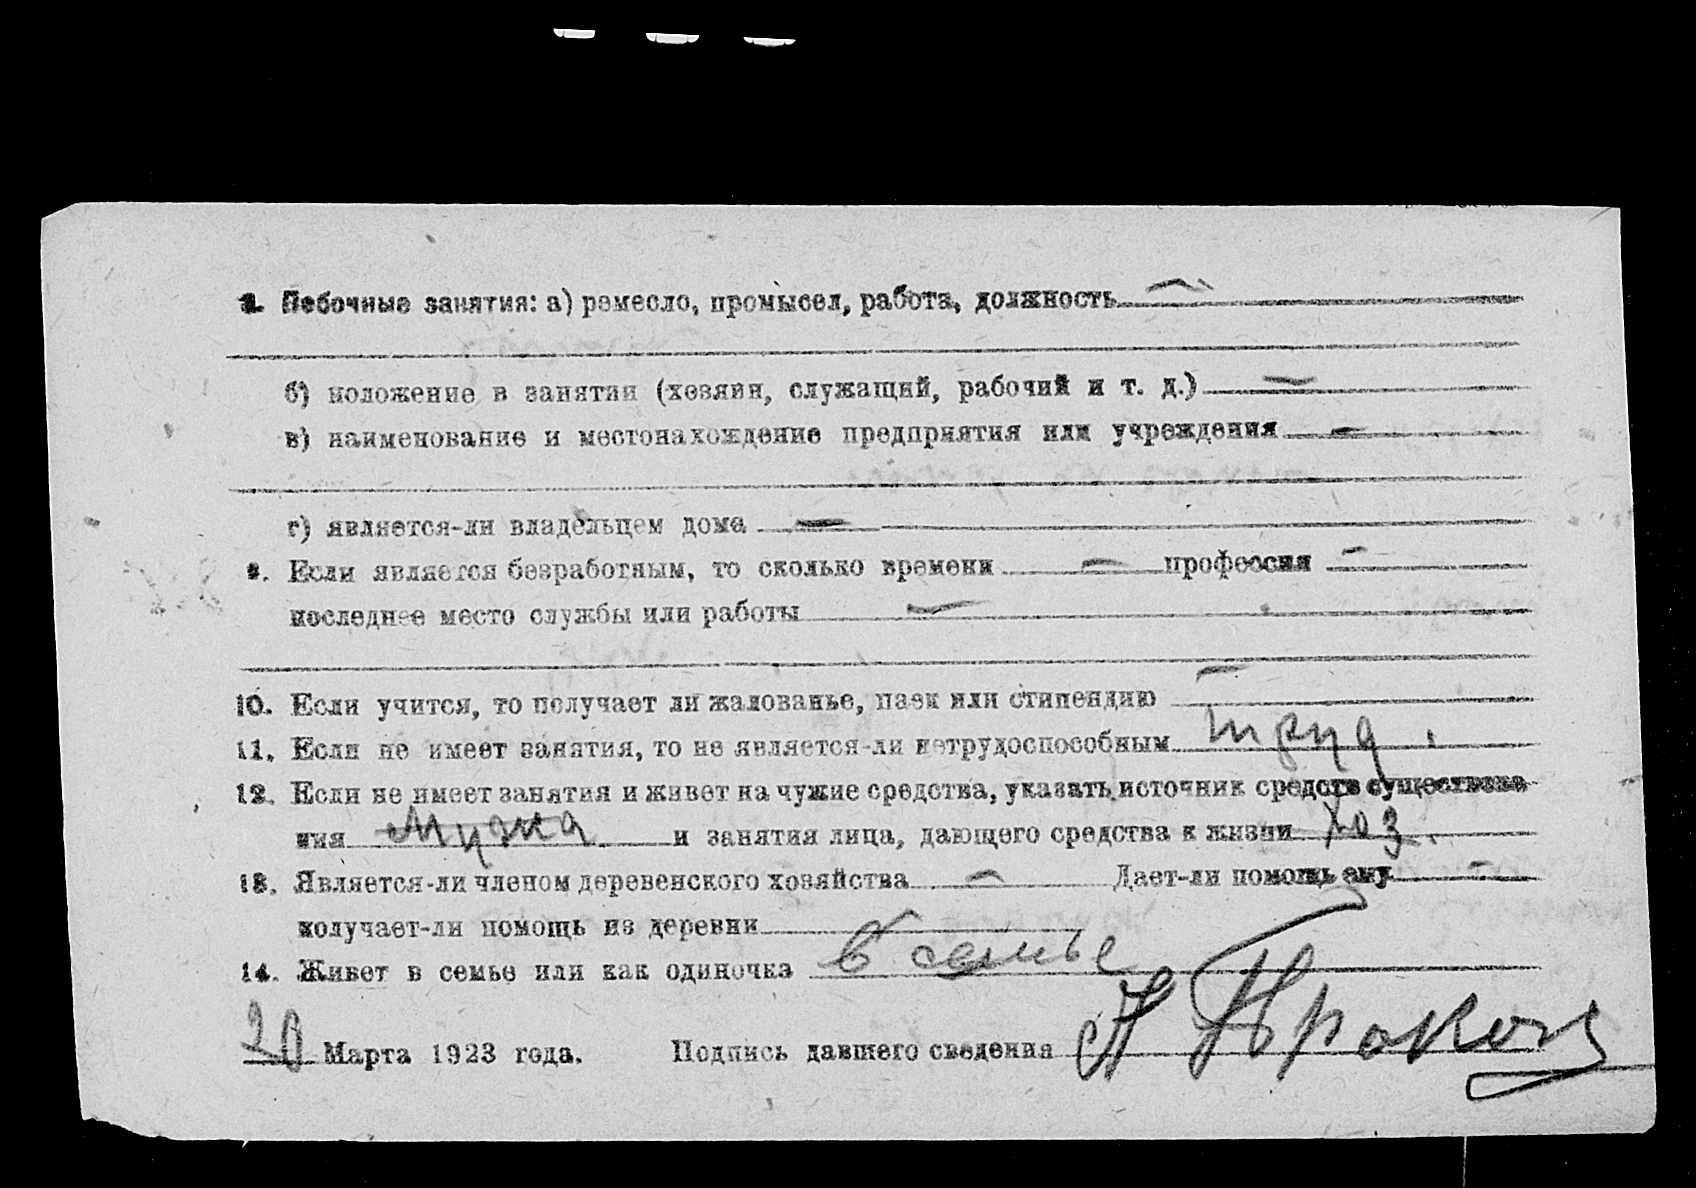 8. Побочные занятия: а) ремесло, промысел, работа, должность —
б) положение в занятии (хозяин, служащий, рабочий и т. д.) —
в) наименование и местонахождение предприятия или учреждения —
г) является-ли владельцем дома —
9. Если является безработным, то сколько времени — профессия —
последнее место службы или работы —
10. Если учится, то получает ли жалованье, паек или стипендию —
11. Если не имеет занятия, то не является-ли нетрудоспособным труд.
12. Если не имеет занятия и живет на чужие средства, указать источник средств существова
ния мужа и занятия лица, дающего средства к жизни хоз.
13. Является-ли членом деревенского хозяйства — Дает-ли помощь ему —
получает-ли помощь из деревни
14. Живет в семье или как одиночка в семье
20 Марта 1923 года. Подпись давшего сведения